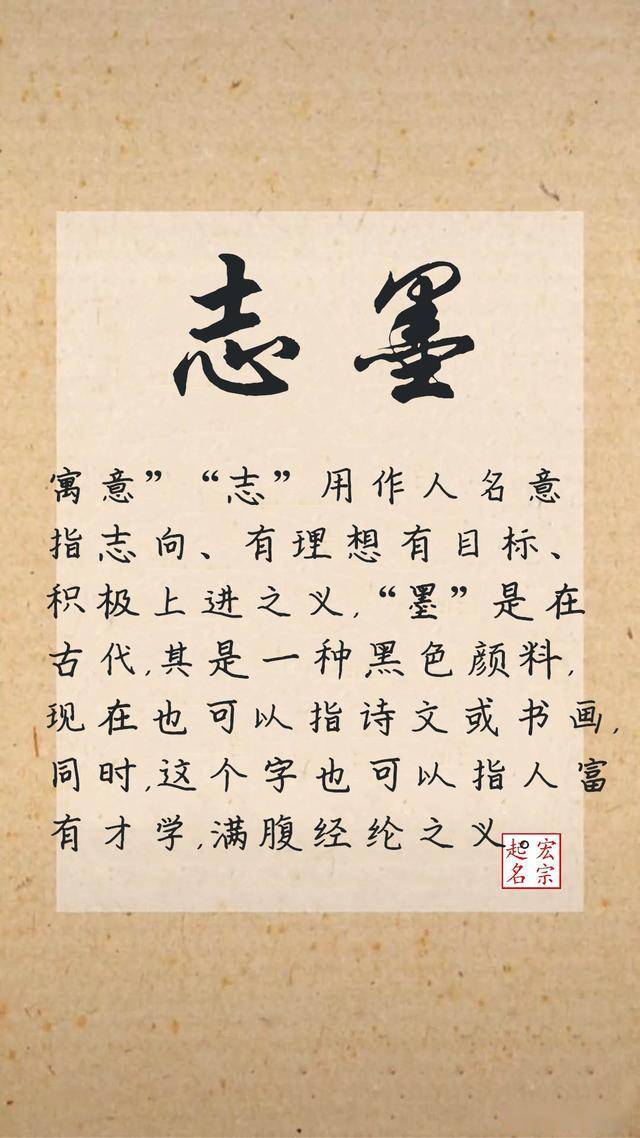 志墨
寓意”“志”用作人名意
指志向、有理想有目标、
积极上进之义,“墨”是在
古代,其是一种黑色颜料,
现在也可以指诗文或书画,
同时,这个字也可以指人富
有才学,满腹经纶之义。
宏宗
起名